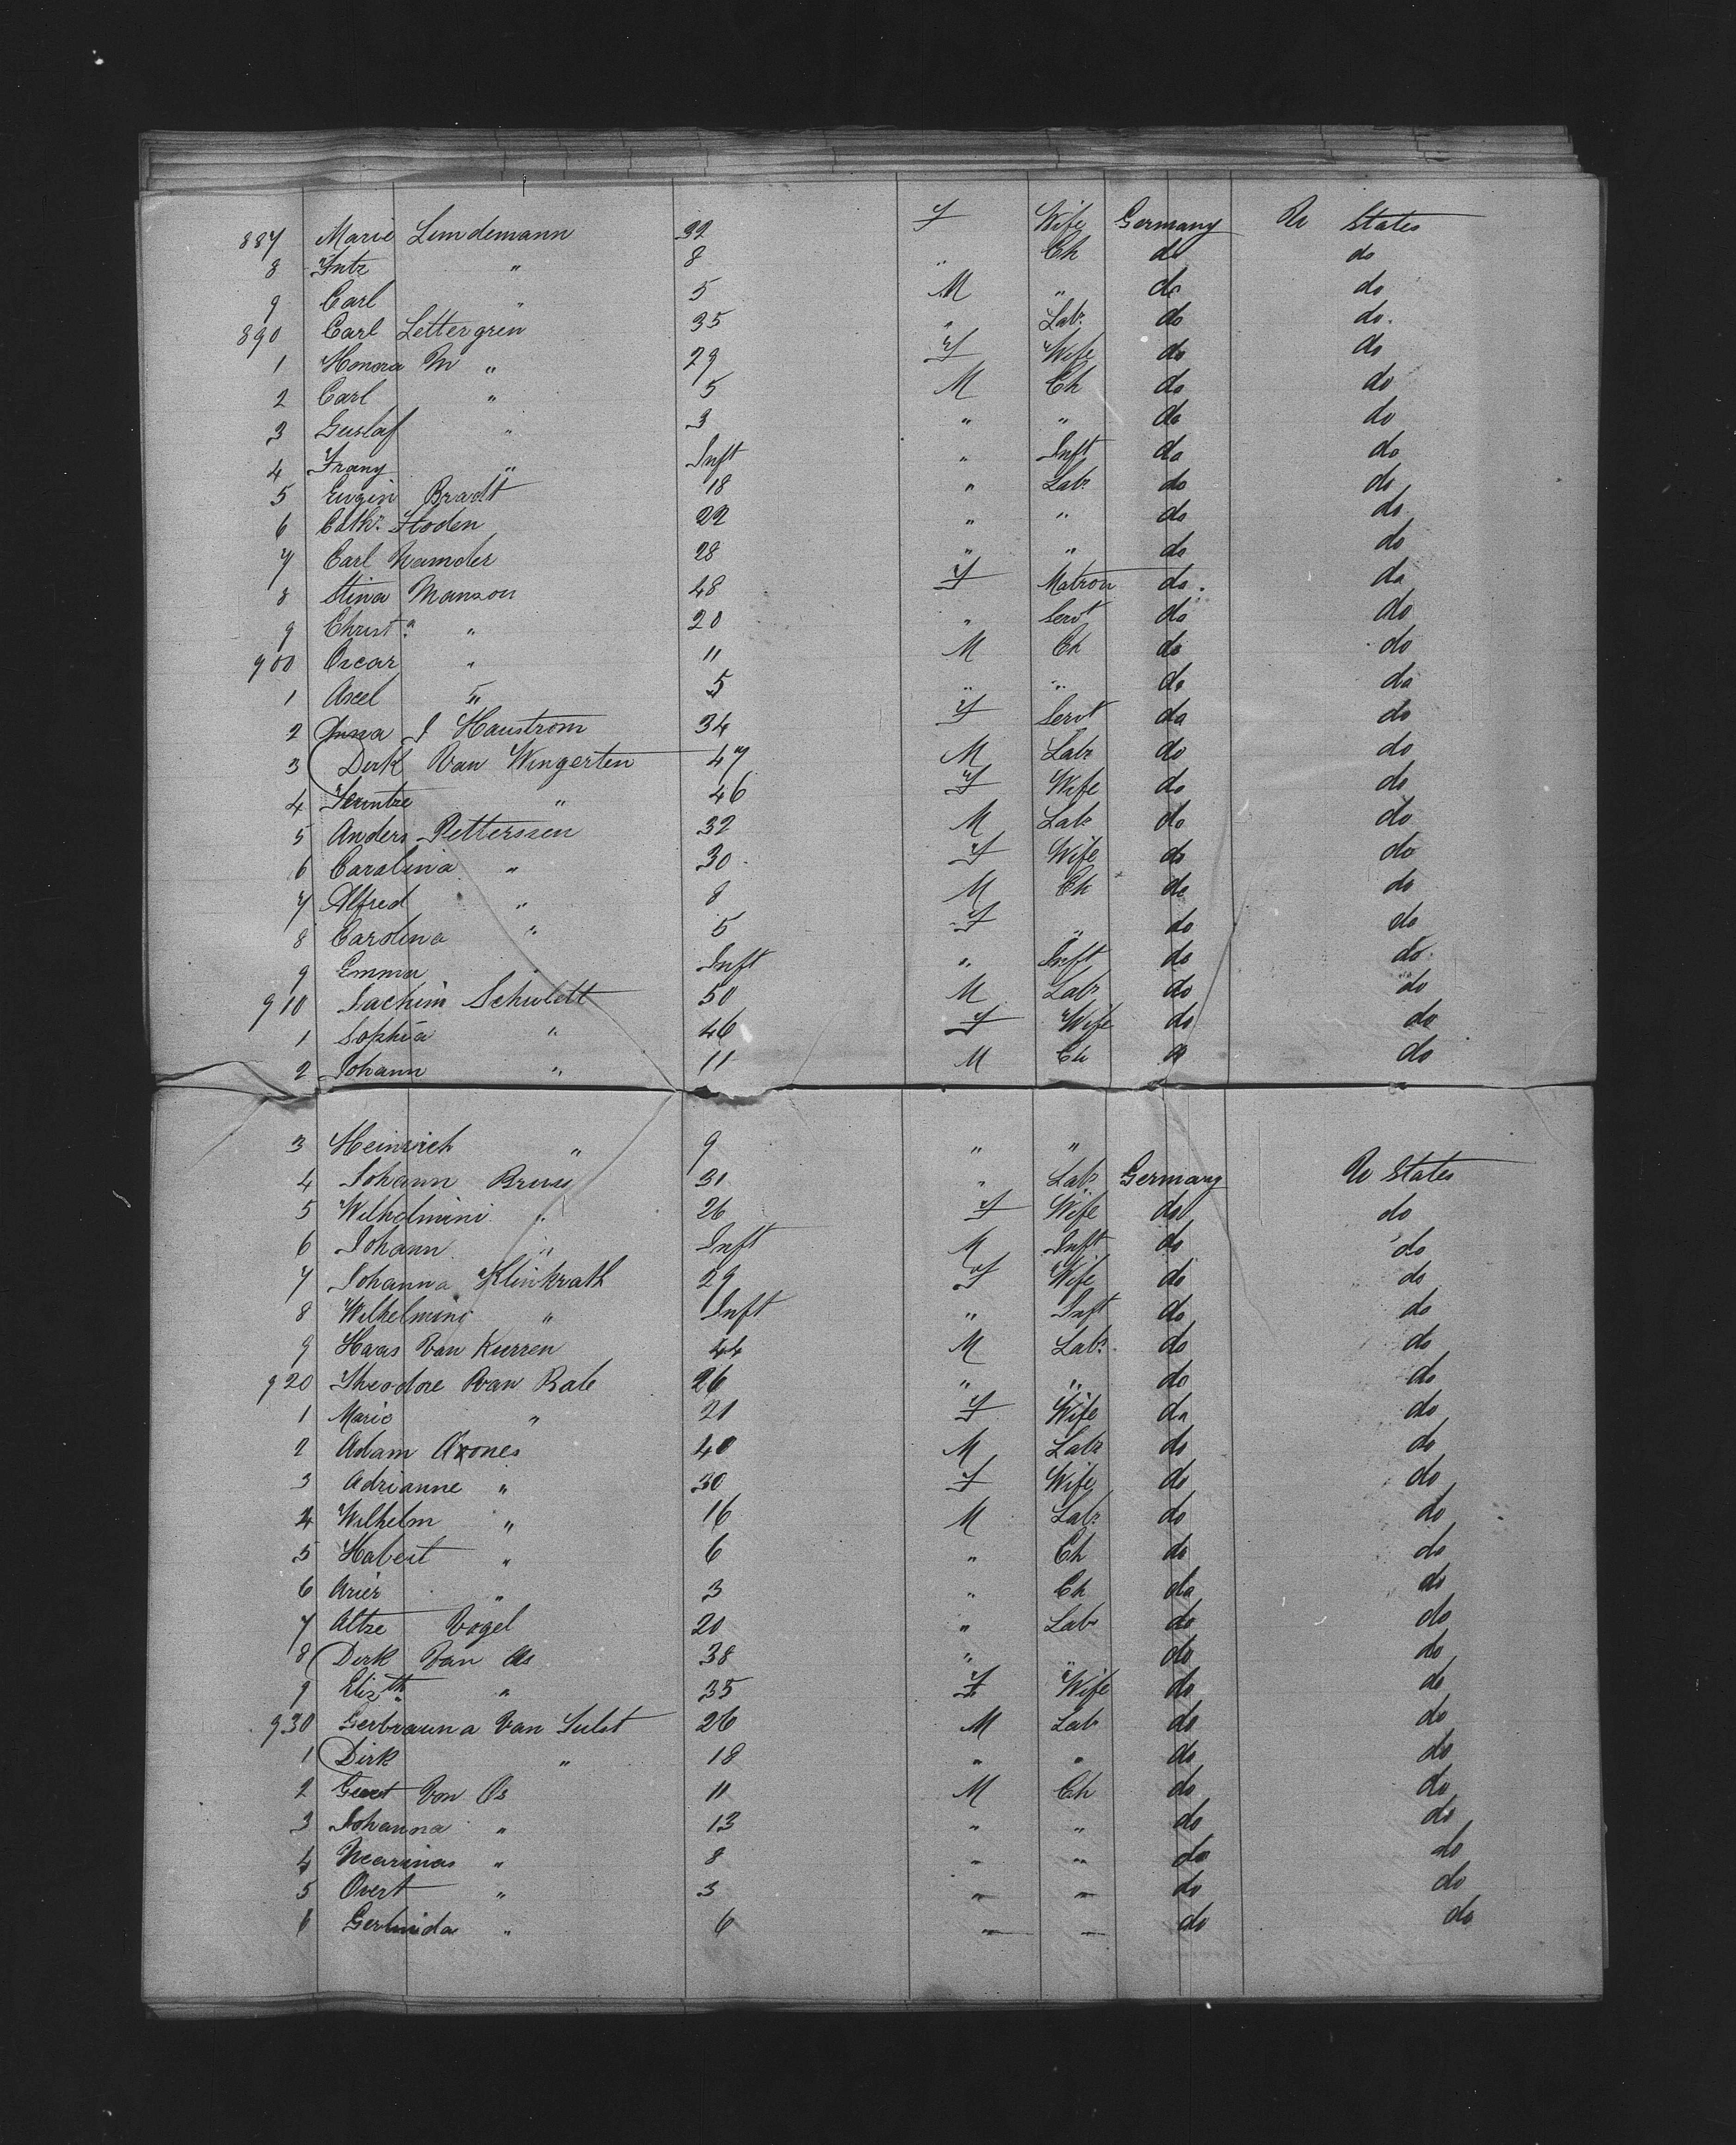 887 Marie Lindemann 32 F Wife Germany U States
8 Fritz " 8 " Ch do do
9 Carl " 5 M " do do
890 Carl Lettergren 35 " Labr do do
1 Honora M " 29 F Wife do do
2 Carl " 5 M Ch do do
3 Gustaf " 3 " " do do
4 Franz " Inft " Inft do do
5 Eugin Bradt 18 " Labr do do
6 Cathr Stoden 22 " " do do
7 Carl 28 " " do do
8 Stina Manson 48 F Matron do do
9 Christa " 20 " Servt do do
900 Oscar " 11 M Ch do do
1 Axel " 5 " " do do
2 J Haustrom 34 F Servt do do
3 Dirk Van Wingerten 47 M Labr do do
4 " 46 F Wife do do
5 Anders Petterssen 32 M Labr do do
6 Carolina " 30 F Wife do do
7 Alfred " 8 M Ch do do
8 Carolina " 5 F " do do
9 Emma Inft " Inft do do
910 Jachim Schuldt 50 M Labr do do
1 Sophia " 46 F Wife do do
2 Johann " 11 M Ch do
3 Heinrich " 9 " "
4 Johann Bruss 31 " Labr Germany U States
5 Wilhelmini " 26 F Wife do do
6 Johann " Inft M Inft do do
7 Johanna Klinkrath 29 F Wife do do
8 Wilhelmini " Inft " Inft do do
9 Haas Van Kurren 44 M Labr do do
920 Theodore Van Rale 26 " " do do
1 Marie " 21 F Wife do do
2 Adam Krones 40 M Labr do do
3 Adrianne " 30 F Wife do do
4 Wilhelm " 16 M Labr do do
5 Habert " 6 " Ch do do
6 Arier " 3 " Ch do do
7 Altze Vogel 20 " Labr do do
8 Dirk Van As 38 " " do do
9 Elizth " 35 F Wife do do
930 Gerbrauna Van Sulst 26 M Labr do do
1 Dirk " 18 " " do do
2 Geert Von Os 11 M Ch do do
3 Johanna " 13 " " do do
4 Mearinas " 8 " " do do
5 Overt " 3 " " do do
6 " 6 " " do do